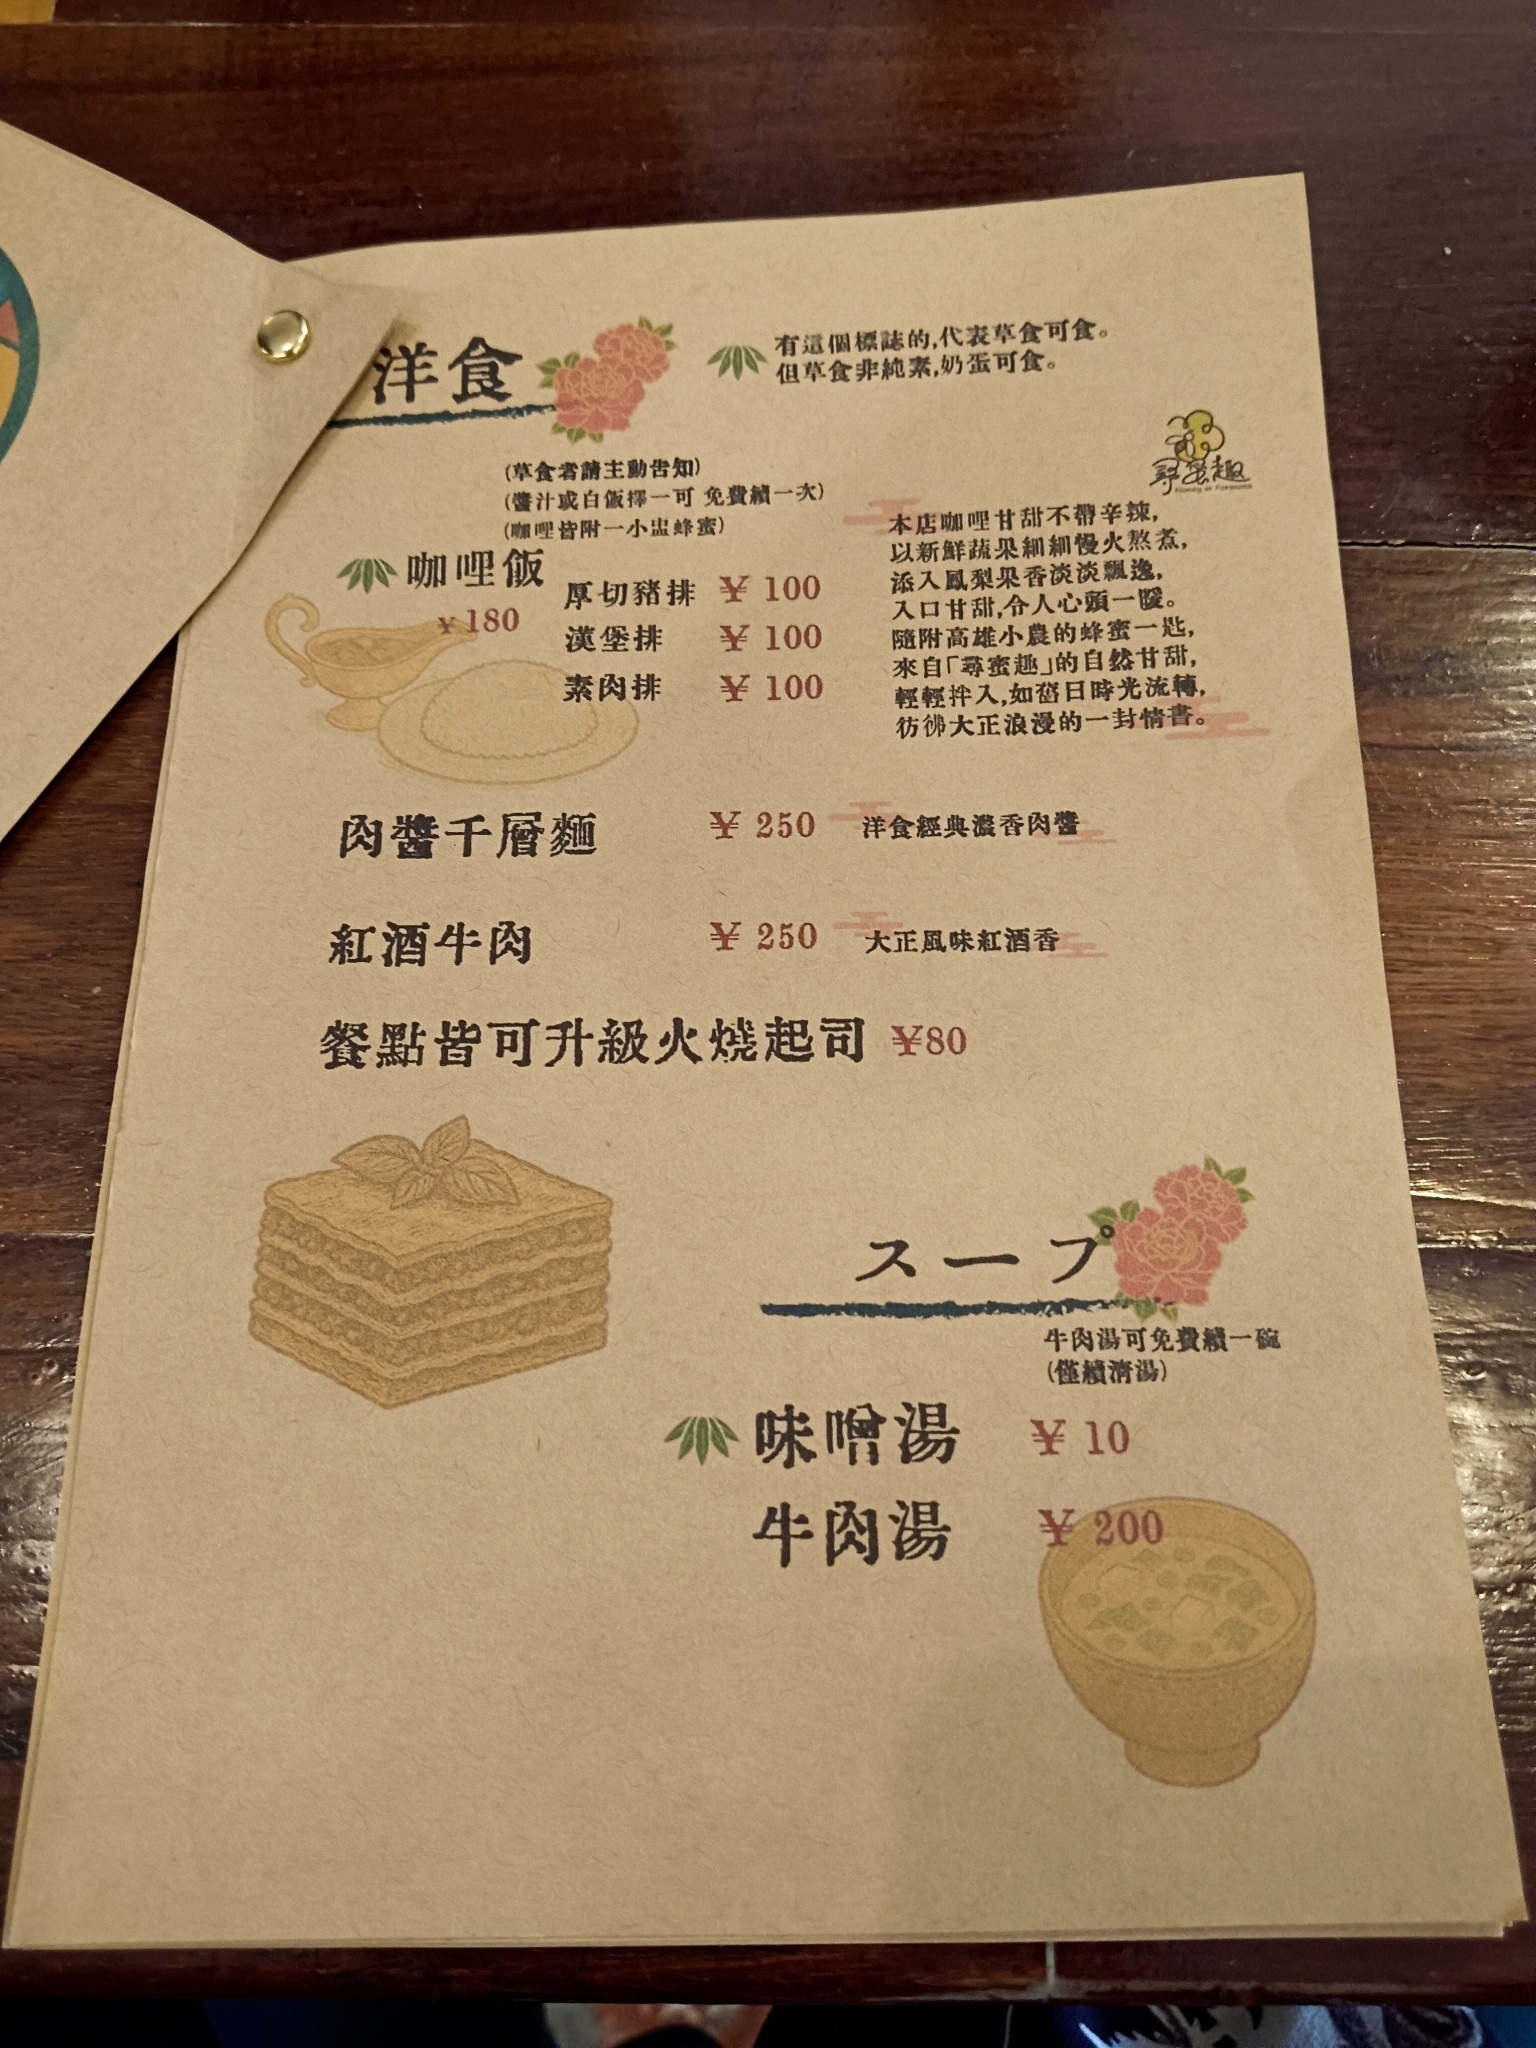 洋食
有這個標誌的,代表草食可食。
但草食非純素,奶蛋可食。
(草食者請主動告知)
(醬汁或白飯擇一可 免費續一次)
(咖哩皆附一小盅蜂蜜)
咖哩飯
¥180
厚切豬排 ¥ 100
漢堡排 ¥ 100
素肉排 ¥ 100
尋蜜趣
本店咖哩甘甜不帶辛辣,
以新鮮蔬果細細慢火熬煮,
添入鳳梨果香淡淡飄逸,
入口甘甜,令人心頭一暖。
隨附高雄小農的蜂蜜一匙,
來自「尋蜜趣」的自然甘甜,
輕輕拌入,如舊日時光流轉,
彷彿大正浪漫的一封情書。
肉醬千層麵 ¥ 250 洋食經典濃香肉醬
紅酒牛肉 ¥ 250 大正風味紅酒香
餐點皆可升級火燒起司 ¥80
スープ
牛肉湯可免費續一碗
(僅續清湯)
味噌湯 ¥ 10
牛肉湯 ¥ 200